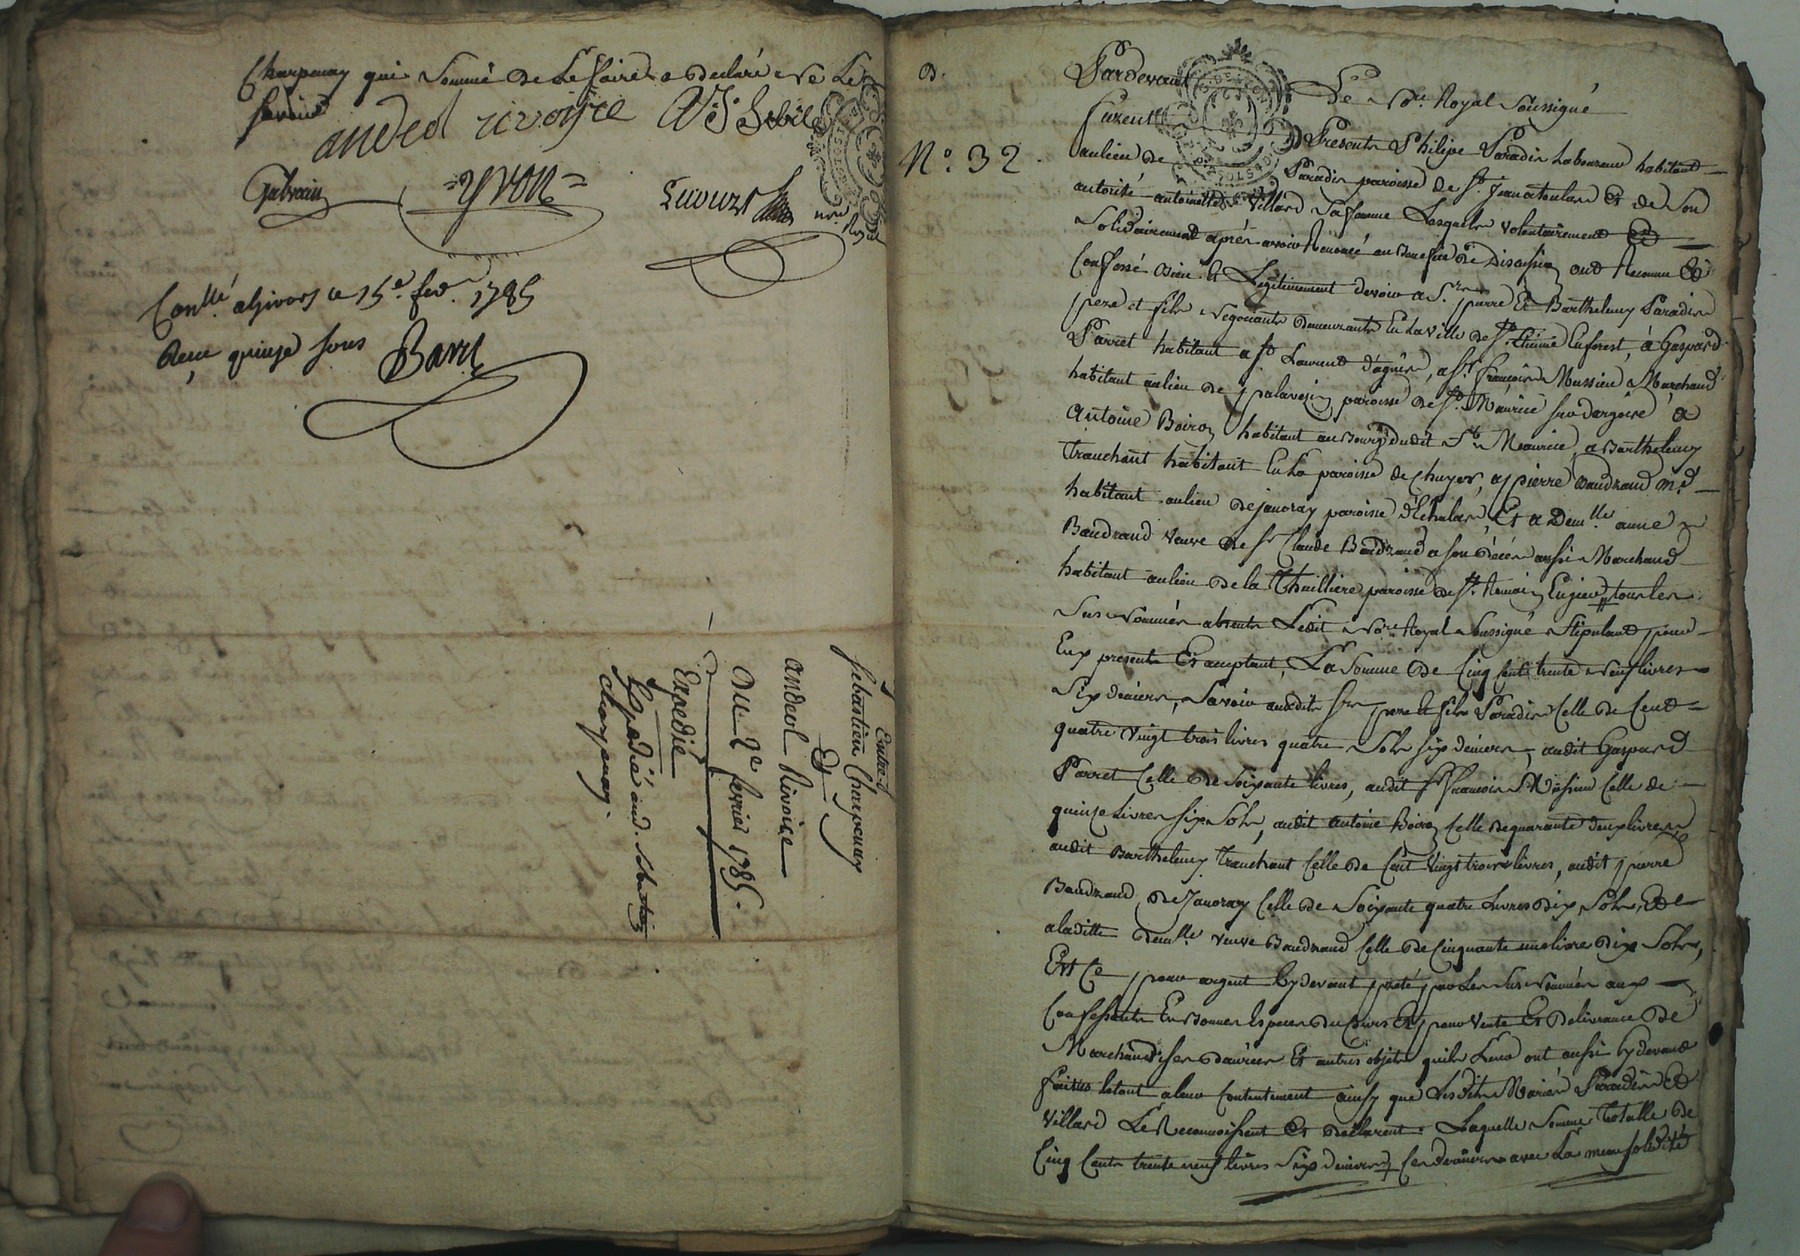 Charpenay qui Sommé de Le faire a declaré ne Le
Savoir
andeol rivoire
Galvain
=yvon=
nore Royal
Conllé a Givors ce 15e. fevr. 1785
Reçu quinze sous Barret
Entre
Sebastien Charpenay
Et
andeol Rivoire
Du 2e fevrier 1785.
Expedié
Expedié aud. Sebastien
charpenay.
B.
N.o 32.
Pardevant Le nore Royal Soussigné
Furent Presents Philipe Paradis Laboureur habitant
au lieu de Paradis paroisse de St. Jean a toulas Et de Son
autorité antoinette Villard Sa femme Lesquels volontairement Et
Solidairement après avoir Renoncé au Benefice de Discussion ont Reconnu Et
Confessé Bien Et Legitimement devoir a Srs. pierre Et Barthelemy Paradis
pere et fils Negociants demeurants En La Ville de St. Etienne En forest, à Gaspard
Parret habitant a St. Laurent d'agnis, a Sr. françois Massieu Marchand
habitant au lieu de palavezin paroisse de St. Maurice sur dargoire, à
Antoine Boiron habitant au Bourg dudit St. Maurice, a Barthelemy
Tranchant habitant En La paroisse de Chuyer, a pierre Baudrand md
habitant au lieu de janoray paroisse d'Echalas, Et a Demlle anne
Baudrand Veuve de Sr. Claude Baudrand a Son décès aussi Marchand
habitant au lieu de la Thuilliere paroisse de St. Romain En gier, tous les
Sus nommés absents Ledit nore Royal Soussigné Stipulant pour
Eux present Et acceptant, La Somme de Cinq Cent trente neuf livres
Six deniers, Savoir auxdits Srs pere Et fils Paradis Celle de Cent
quatre Vingt trois livres quatre Sols six deniers, audit Gaspard
Parret Celle de Soixante livres, audit Sr. francois Massieu Celle de
quinze Livres six Sols, audit Antoine Boiron Celle de quarante deux livres
audit Barthelemy Tranchant Celle de Cent Vingt trois livres, audit pierre
Baudrand de Janoray Celle de Soixante quatre Livres Dix Sols, Et
a laditte Demlle. veuve Baudrand Celle de Cinquante une livre Dix Sols,
Et Ce pour argent Cy devant preté par Les Sus nommés aux
Confessants En Bonnes Especes du Cours Et pour Vente Et Delivrance De
Marchandises Danrées Et autres objets quils Leur ont aussi Cy devant
faittes Letout a leur Contentement ainsy que Lesdits Mariés Paradis Et
Villard Le Reconnoissent Et Déclarent. Laquelle Somme Totalle De
Cinq Cents trente neuf livres Six deniers Ces Derniers avec La meme Solidité